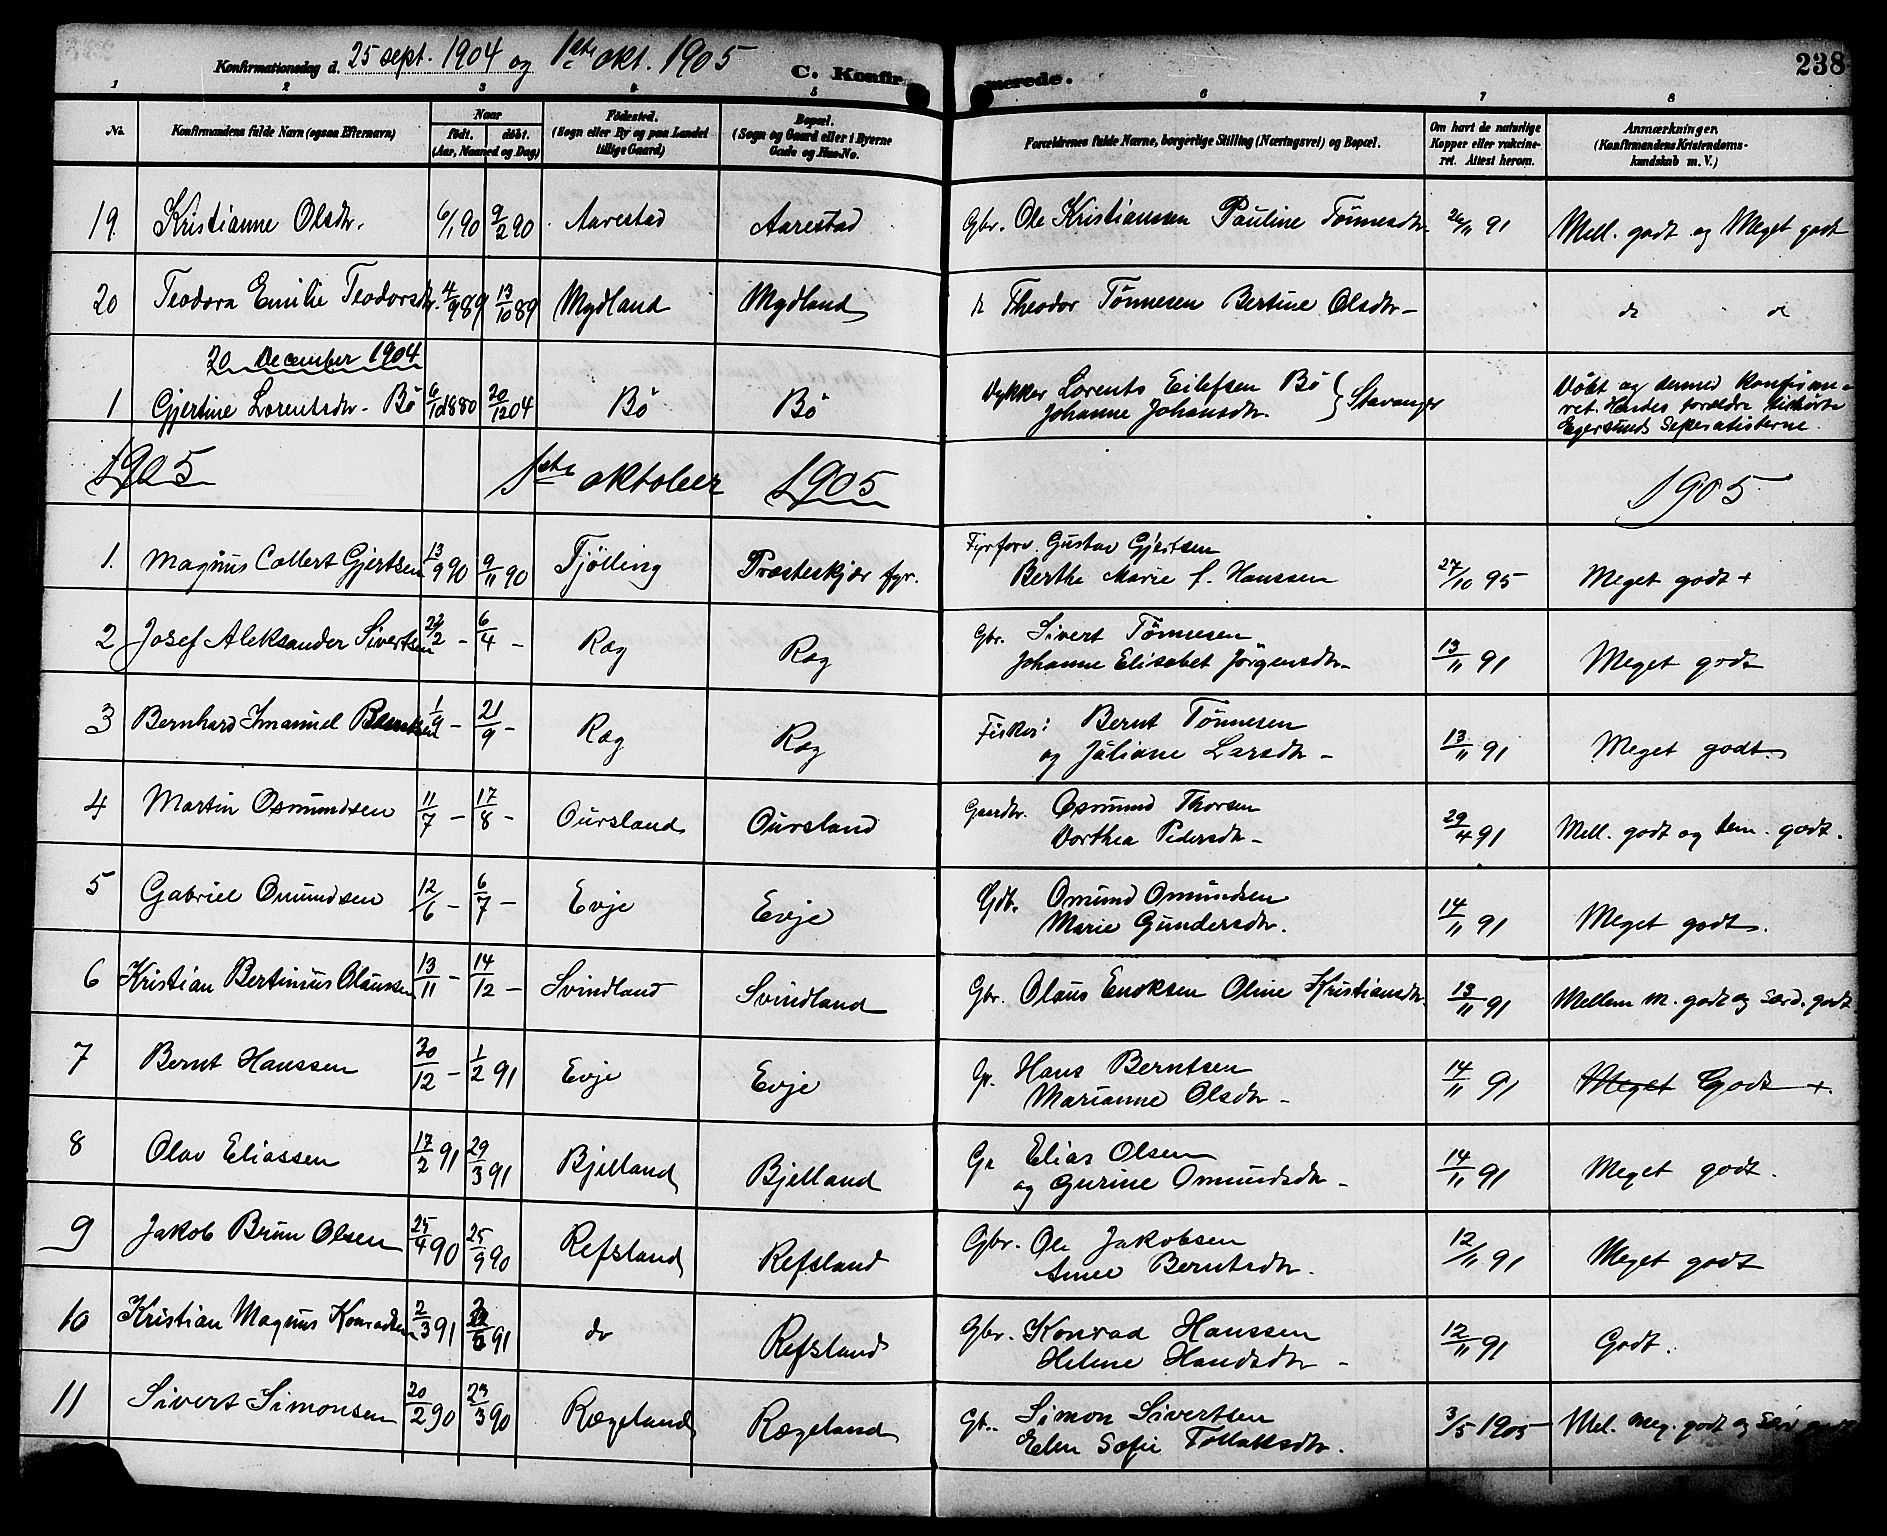 Konfirmationsdag d. 25 sept. 1904 og 1ste okt. 1905 C. Konfirmerede. 238
1 2 3 4 5 6 7 8
No. Konfirmandens fulde Navn (ogsaa Efternavn) Naar født. døbt. (Aar, Maaned og Dag) Fødested. (Sogn eller By og paa Landet tillige Gaard) Bopæl. (Sogn og Gaard eller i Byerne Gade og Hus-No. Forældrenes fulde Navne, borgerlige Stilling (Næringsvei) og Bopæl. Om havt de naturlige Kopper eller vaccineret. Attest herom. Anmærkninger. (Konfirmandens Kristendomskundskab m. V.)
19 Kristianne Olsdtr. 6/1 90 9/2 90 Aarestad Aarestad Gbr. Ole Kristianssen Pauline Tønnesdtr 26/11 91 Mell. godt og Meget godt
20 Teodora Emilie Teodorsdtr. 4/9 89 13/10 89 Mydland Mydland Theodor Tønnesen Bertine Olsdtr – do do
20 December 1904
1 Gjertine Lorentsdtr - Bö 6/10 1880 20/12 04 Bö Bö Dykker Lorents Eilefsen Bö
Johanne Johansdtr. } Stavanger
Döbt og dermed konfirmeret. Hendes forældre tilhörte
Egersunds Seperatisterne.
1905 1ste oktober 1905 1905
1. Magnus Collert Gjertsen 13/9 90 9/11 90 Tjölling Præsteskjær fyr. Fyrforv. Gustav Gjertsen
Berthe Marie f. Hanssen 27/10 95 Meget godt +
2 Josef Aleksander Sivertsen 22/2 - 6/4 - Ræg Ræg Gbr. Sivert Tönnesen
Johanne Elisabet Jörgensdtr – 13/11 91 Meget godt
3 Bernhard Imanuel Berntsen 1/9 - 21/9 - Ræg Ræg Fisker: Bernt Tönnesen
og Juliane Larsdtr – 13/11 91 Meget godt
4 Martin Osmundsen 11/7 - 17/8 - Oursland Oursland Gaardbr. Osmund Thorsen
Dorthea Pedersdtr – 29/4 91 Mell. godt og tem. godt.
5 Gabriel Omundsen 12/6 - 6/7 - Evje Evje Gdb. Omund Omundsen
Marie Gundersdtr. 14/11 91 Meget godt.
6 Kristian Bertinius Olaussen 13/11 - 14/12 - Svindland Svindland Gbr. Olaus Enoksen Oline Kristiansdtr 13/11 91 Mellem m. godt og Særd. godt
7 Bernt Hanssen 30/12 - 1/2 91 Evje Evje Gr. Hans Berntsen
Marianne Olsdtr – 14/11 91 Meget Godt +.
8 Olav Eliassen 17/2 91 29/3 91 Bjelland Bjelland Gr Elias Olsen
og Gurine Omundsdtr – 14/11 91 Meget godt.
9 Jakob Brun Olsen 25/4 90 25/9 90 Refsland Refsland Gbr. Ole Jakobsen
Anne Berntsdtr. 12/11 91 Meget godt
10 Kristian Magnus Konradsen 2/3 91 91 do Refsland Gbr. Konrad Hanssen
Helene Hansdtr – 12/11 91 Godt.
11 Sivert Simonsen 20/2 90 23/3 90 Rægeland Rægeland Gb. Simon Sivertsen
Elen Sofie Tollaksdtr. 3/5 1905 Mel. meg. godt og Særd godt